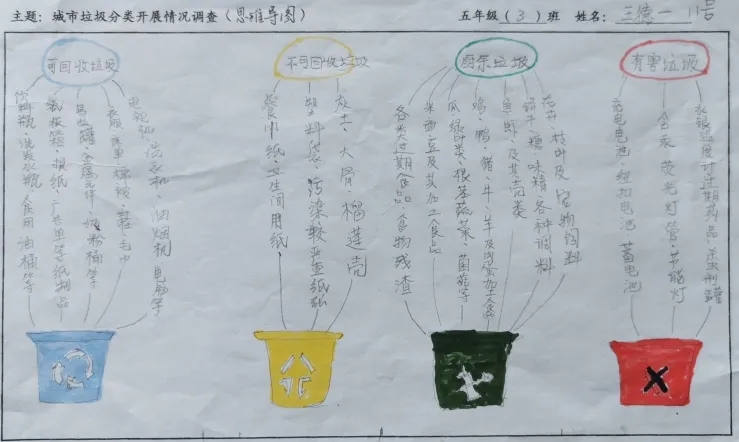 主题：城市垃圾分类开展情况调查（思维导图）
五年级（3）班 姓名：王德一 11号
可回收垃圾
饮料瓶、洗发水瓶、食用油桶等
纸板箱、报纸、广告单等纸制品
衣服、床单、毛巾
电视机、洗衣机、油烟机
不可回收垃圾
餐巾纸、卫生间用纸
塑料袋、污染较严重纸张
灰土、大骨、榴莲壳
厨余垃圾
各类过期食品、食物残渣
米面豆及其加工食品
瓜绿叶类、根茎蔬菜、菌菇等
鸡、鸭、猪、牛、羊及肉类加工食品
鱼虾、及其壳类
糖、味精各种调料
花卉、枝叶及宠物饲料
有害垃圾
充电电池、纽扣电池、蓄电池
含汞荧光灯管、节能灯
水银温度计过期药品、杀虫剂罐